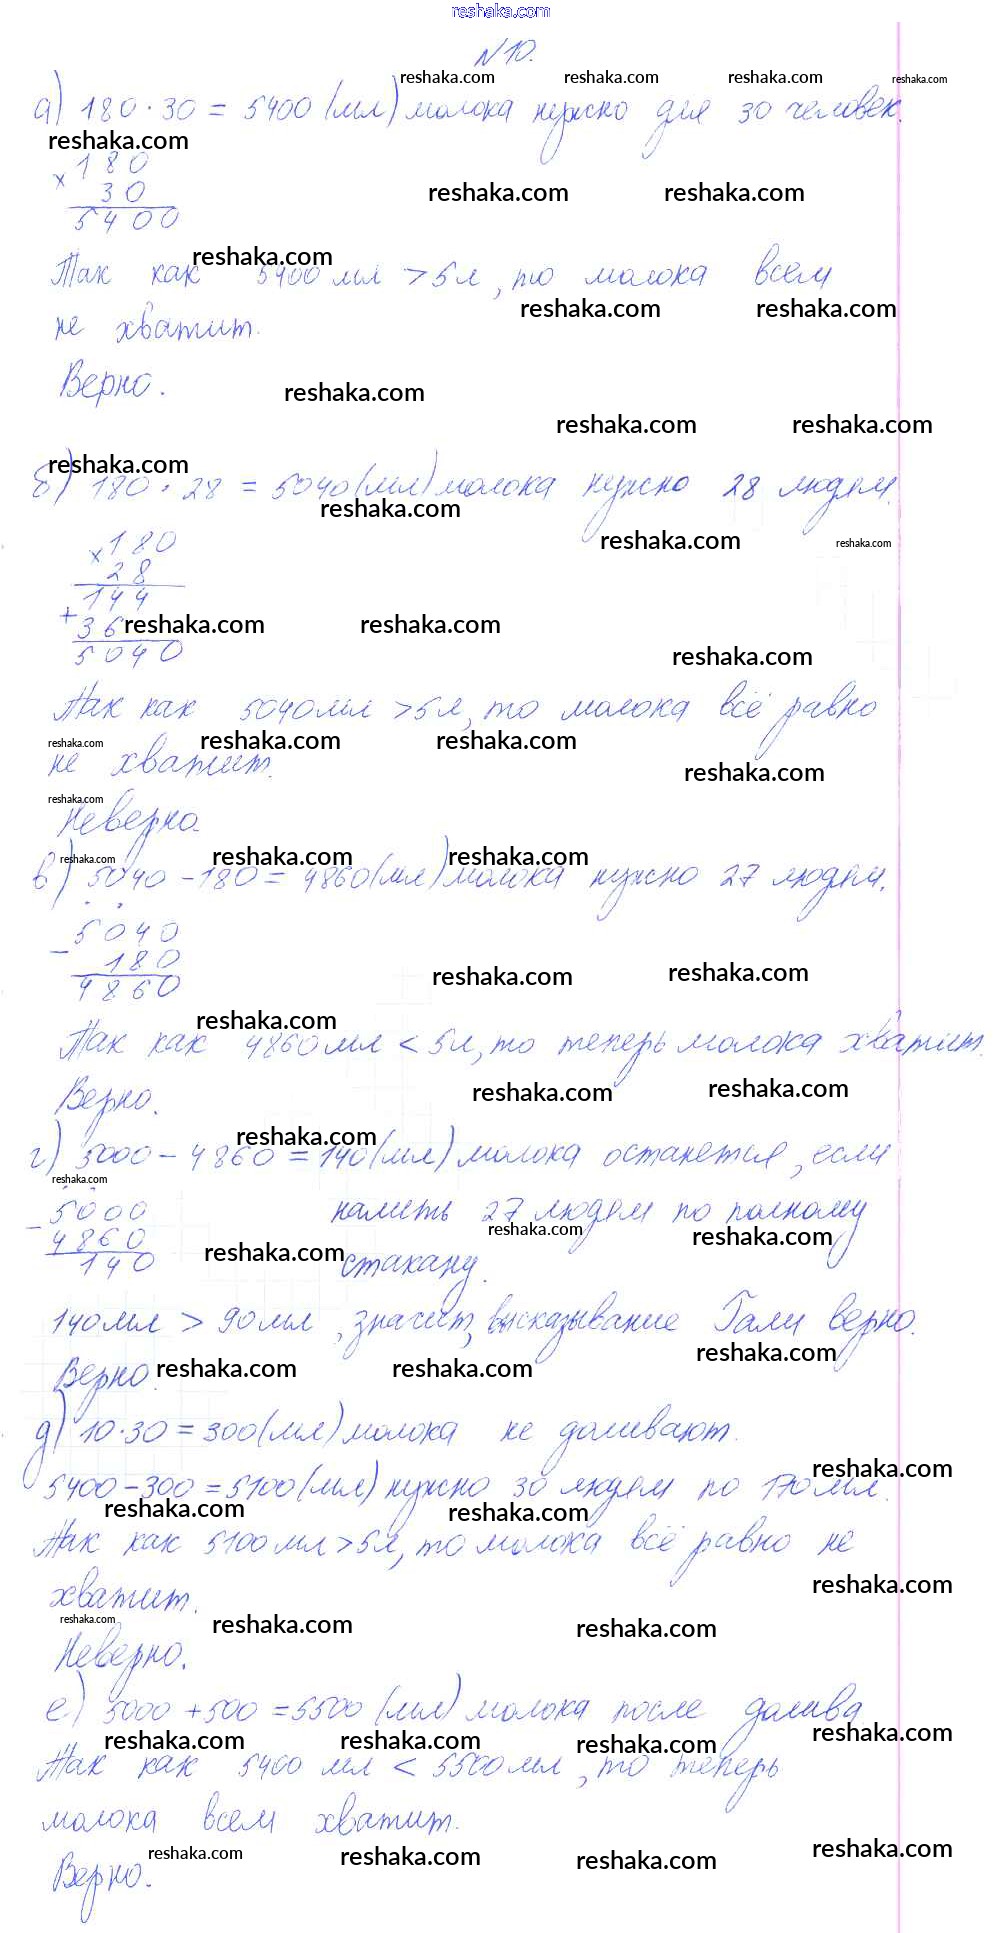 reshaka.com
№10.
reshaka.com reshaka.com reshaka.com reshaka.com
а) 180 · 30 = 5400 (мл) молока нужно для 30 человек.
reshaka.com
× 180
reshaka.com reshaka.com
30
5400
reshaka.com
Так как 5400 мл > 5л, то молока всем
reshaka.com reshaka.com
не хватит.
Верно.
reshaka.com
reshaka.com reshaka.com
reshaka.com
б) 180 · 28 = 5040 (мл) молока нужно 28 людям.
reshaka.com
× 180
reshaka.com reshaka.com
28
144
+ 36
reshaka.com reshaka.com
5040
reshaka.com
Так как 5040 мл > 5л, то молока всё равно
reshaka.com reshaka.com reshaka.com
не хватит.
reshaka.com
reshaka.com
Неверно.
reshaka.com reshaka.com reshaka.com
в) 5040 - 180 = 4860 (мл) молока нужно 27 людям.
- 5040
180
reshaka.com reshaka.com
4860
reshaka.com
Так как 4860 мл < 5л, то теперь молока хватит.
reshaka.com reshaka.com
Верно.
reshaka.com
г) 5000 - 4860 = 140 (мл) молока останется, если
reshaka.com
- 5000 налить 27 людям по полному
reshaka.com reshaka.com
4860
reshaka.com
140 стакану.
140 мл > 90 мл, значит, высказывание Гали верно.
reshaka.com
Верно.
reshaka.com reshaka.com
д) 10 · 30 = 300 (мл) молока не доливают.
reshaka.com
5400 - 300 = 5100 (мл) нужно 30 людям по 170 мл.
reshaka.com reshaka.com
Так как 5100 мл > 5л, то молока всё равно не
reshaka.com
хватит.
reshaka.com reshaka.com reshaka.com
Неверно.
е) 5000 + 500 = 5500 (мл) молока после долива
reshaka.com reshaka.com reshaka.com reshaka.com
Так как 5400 мл < 5500 мл, то теперь
молока всем хватит.
reshaka.com reshaka.com reshaka.com reshaka.com
Верно.